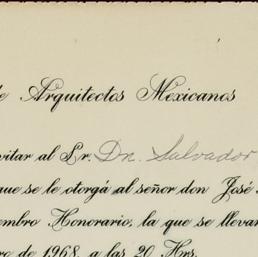 de Arquitectos Mexicanos
vitar al Sr. Dn. Salvador
que se le otorgá al señor don José
embro Honorario, la que se lleva
ro de 1968, a las 20 Hrs.